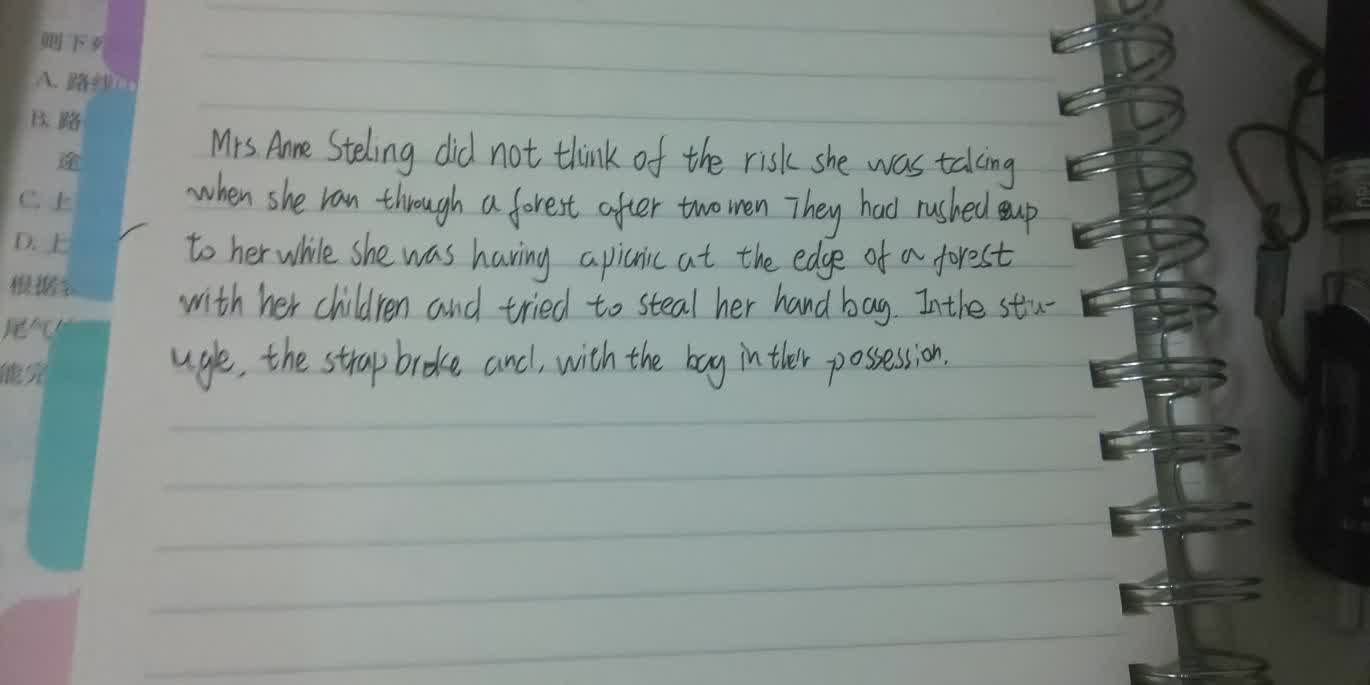 则下列
A. 路线
B. 路
途
C. 上
D. 上
根据
尾气
能完
Mrs. Anne Steling did not think of the risk she was taking
when she ran through a forest after two men They had rushed up
to her while she was having a picnic at the edge of a forest
with her children and tried to steal her hand bag. In the stru-
ugle, the strap broke and, with the bag in their possession.